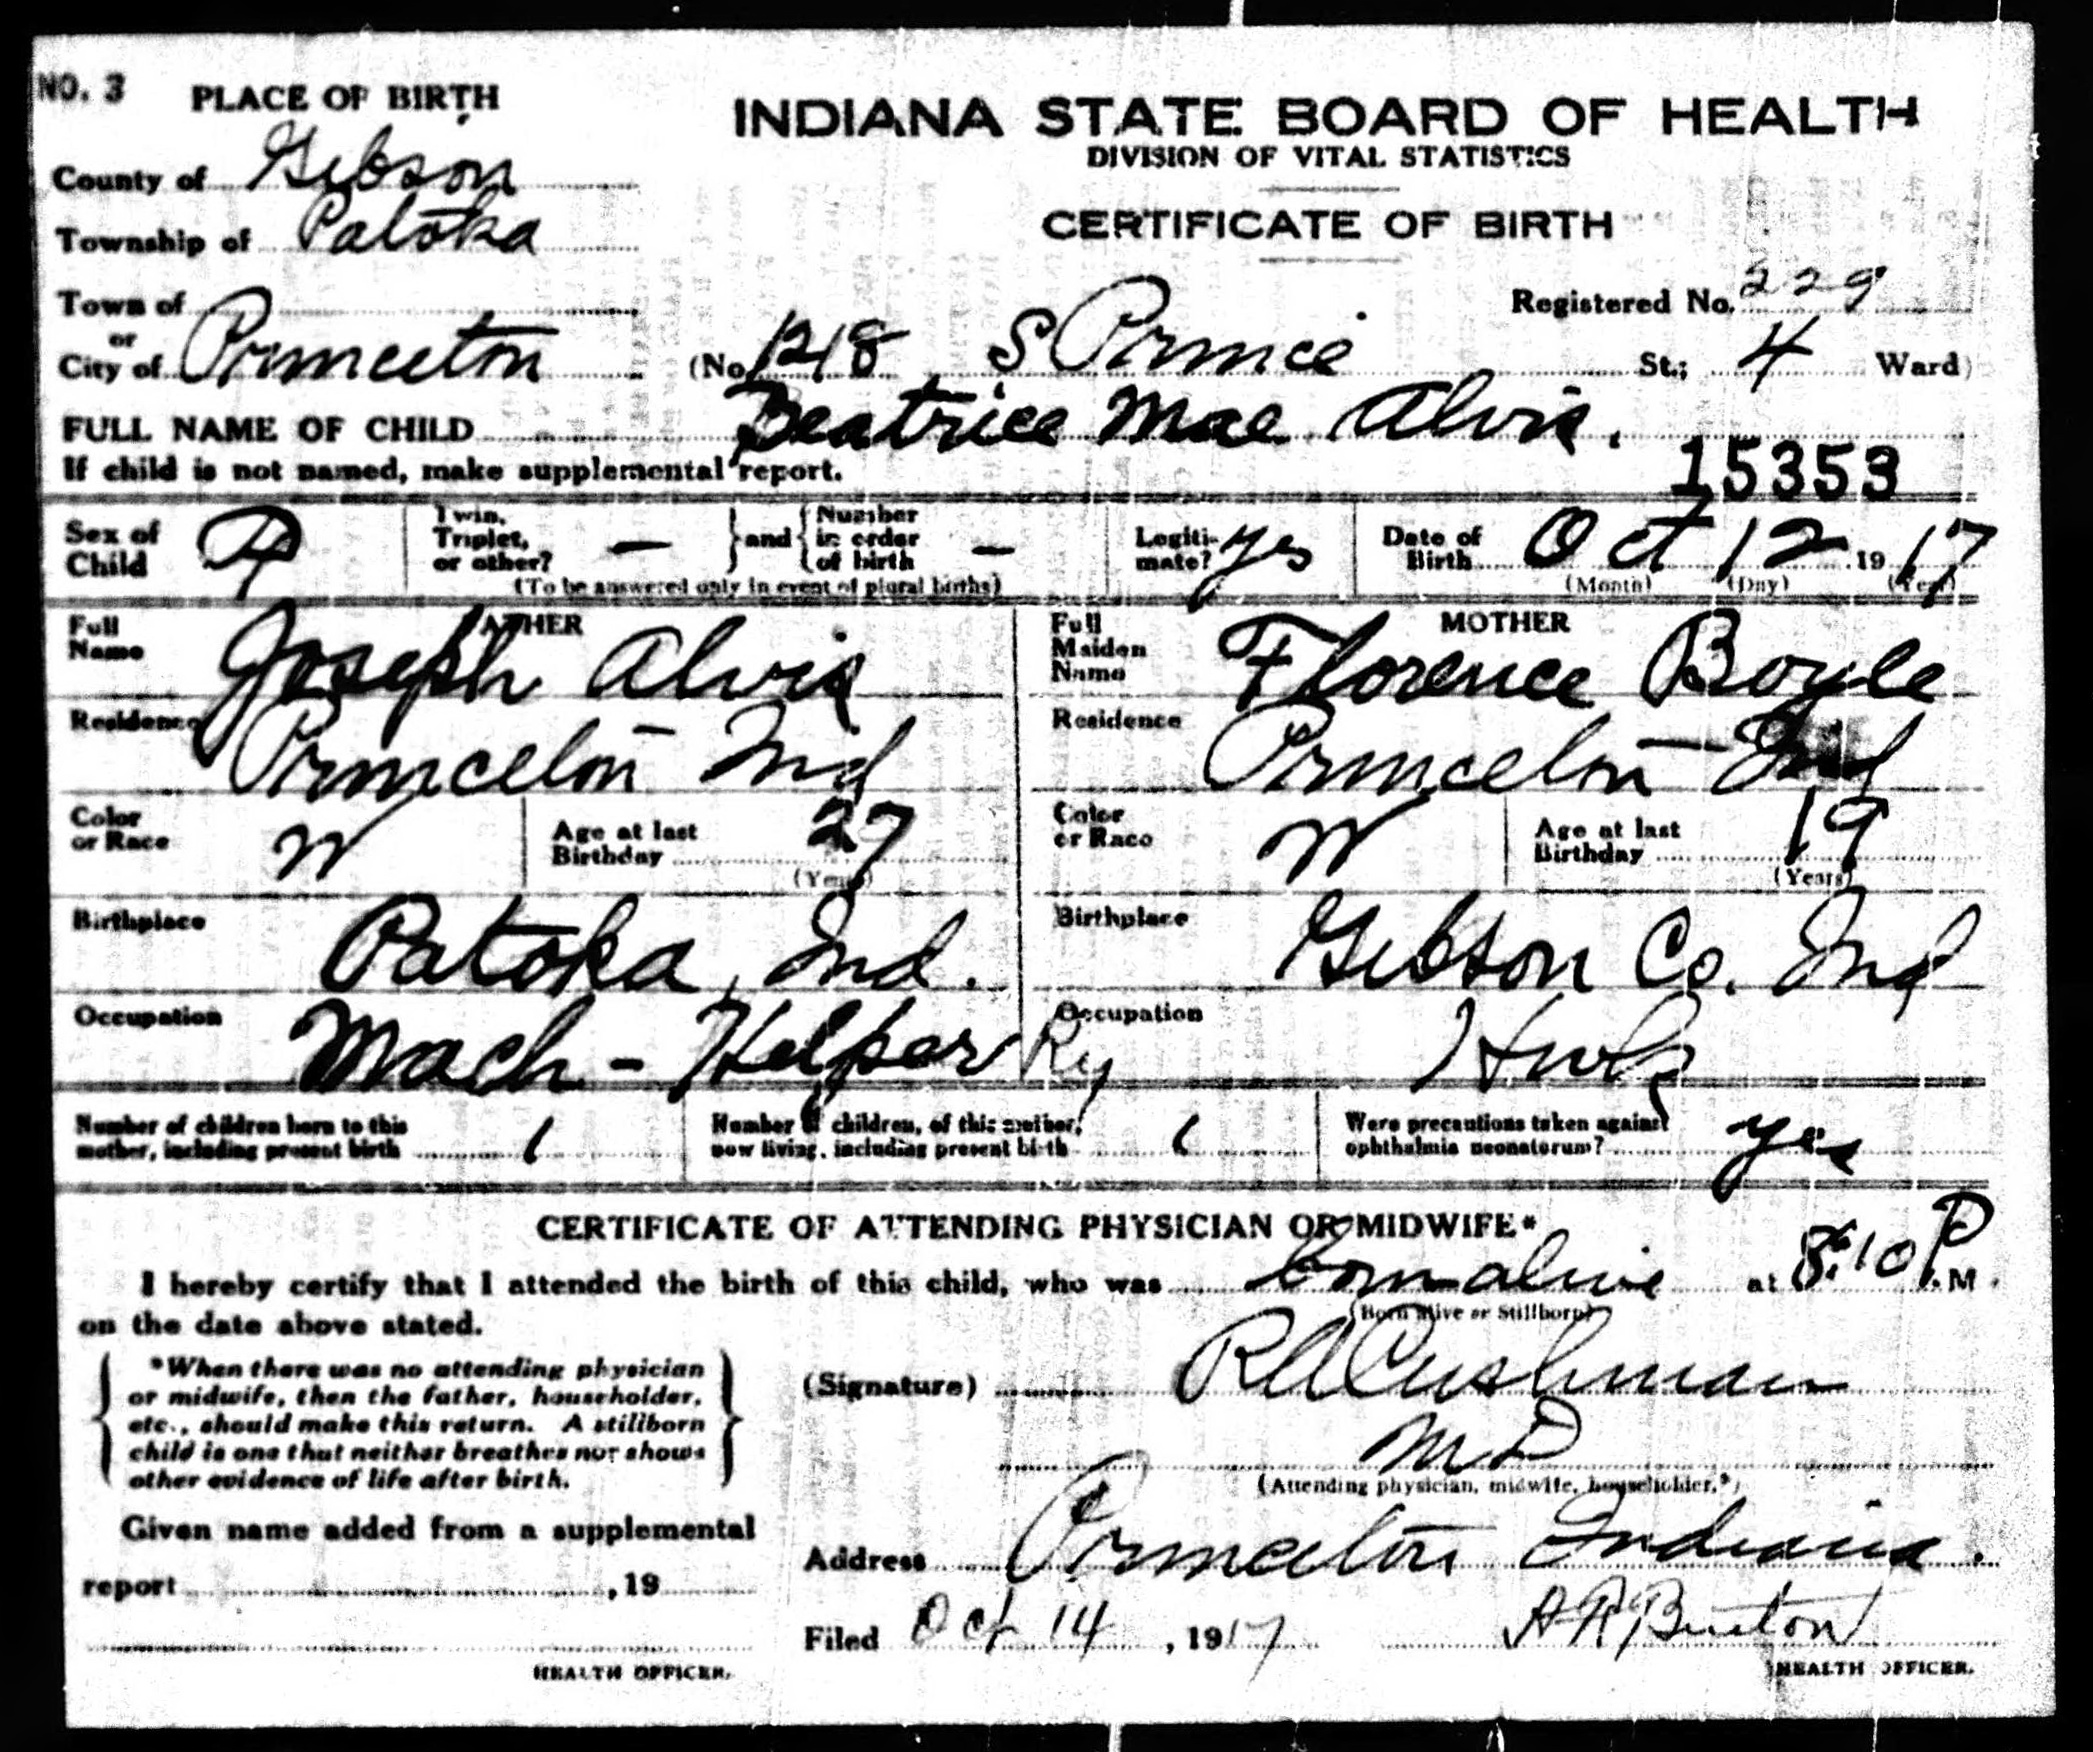 NO. 3
PLACE OF BIRTH
INDIANA STATE BOARD OF HEALTH
DIVISION OF VITAL STATISTICS
CERTIFICATE OF BIRTH
County of Gibson
Township of Patoka
Town of
or
City of Princeton
Registered No. 229
(No. 1218 S Prince St.; 4 Ward)
FULL NAME OF CHILD Beatrice Mae Alvis.
If child is not named, make supplemental report.
15353
Sex of Child F
Twin, Triplet, or other? — and Number in order of birth —
(To be answered only in event of plural births)
Legiti- mate? Yes
Date of Birth Oct 12 1917
(Month) (Day) (Year)
FATHER
Full Name Joseph Alvis
Residence Princeton Ind
Color or Race W
Age at last Birthday 27
(Years)
Birthplace Patoka, Ind.
Occupation Mach - Helper Ry
MOTHER
Full Maiden Name Florence Boyle
Residence Princeton Ind
Color or Race W
Age at last Birthday 19
(Years)
Birthplace Gibson Co. Ind
Occupation
Number of children born to this mother, including present birth 1
Number of children, of this mother, now living, including present birth 1
Were precautions taken against ophthalmia neonatorum? yes
CERTIFICATE OF ATTENDING PHYSICIAN OR MIDWIFE*
I hereby certify that I attended the birth of this child, who was born alive at 8:10 P.M.
(Born alive or Stillborn)
on the date above stated.
*When there was no attending physician
or midwife, then the father, householder,
etc., should make this return. A stillborn
child is one that neither breathes nor shows
other evidence of life after birth.
(Signature) R A Cushman
M D
(Attending physician, midwife, householder.*)
Given name added from a supplemental
report , 19
HEALTH OFFICER.
Address Princeton Indiana.
Filed Oct 14, 1917 A R Burton
HEALTH OFFICER.